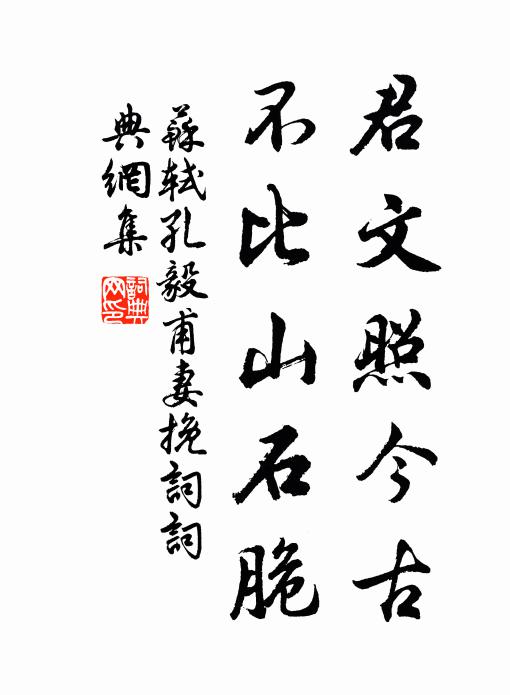 君文照今古
不比山石脆
蘇軾孔毅甫妻挽詞詞
典網集
詞典
网印